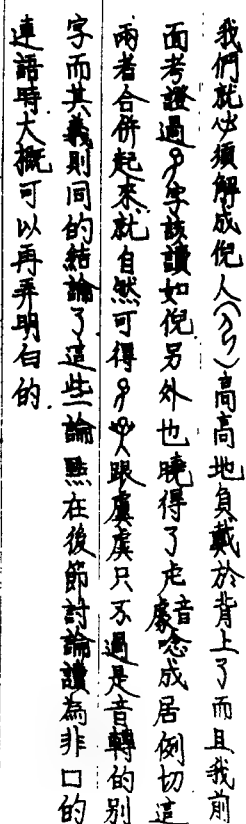 我們就必須解成倪人()高高地負戴於背上了而且我前
面考證過字該讀如倪另外也曉得了虍豦音唸成居例切這
兩者合併起來就自然可得跟虞只不過是音轉的別
字而其義則同的結論了這些論點在後節討論讀為非口的
連語時大概可以再弄明白的.